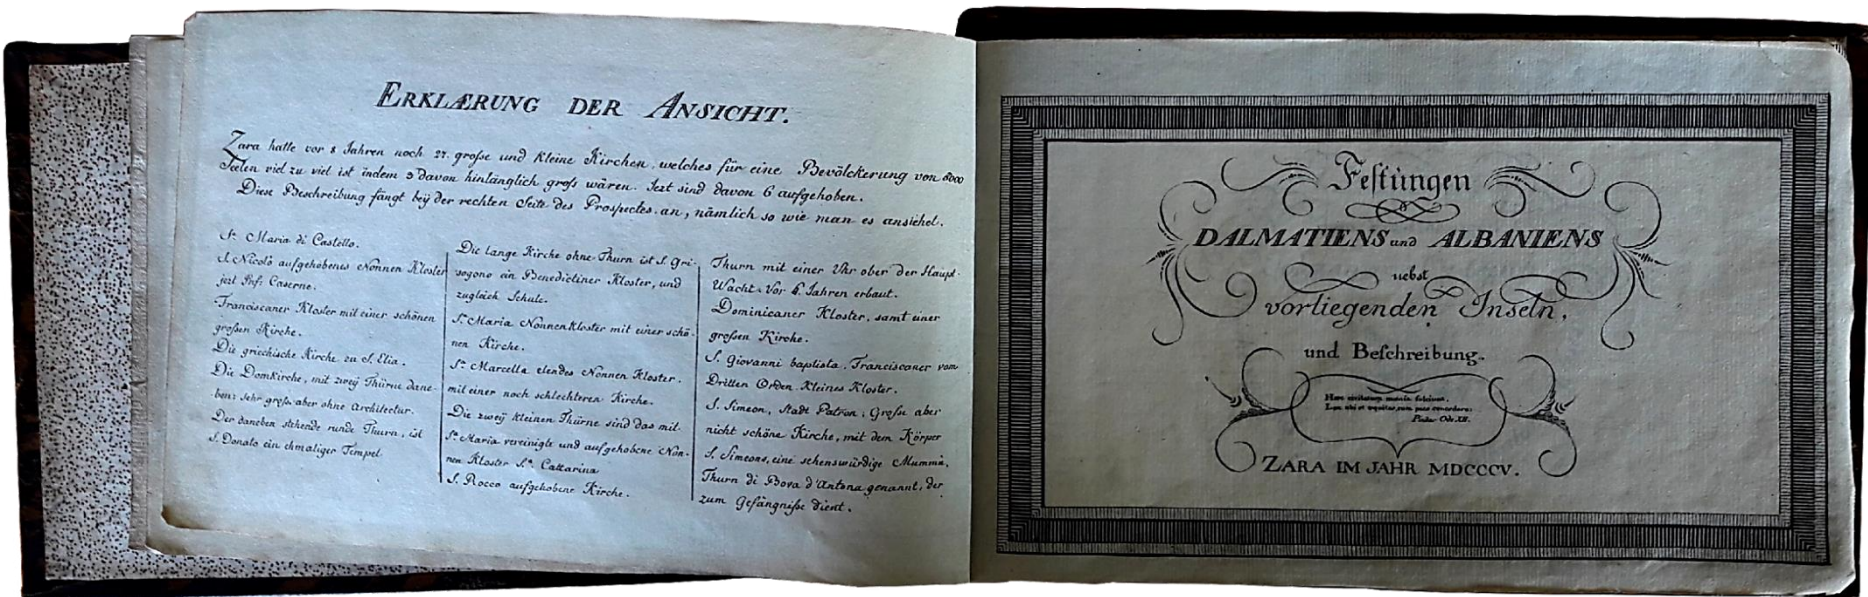 ERKLÆRUNG DER ANSICHT.
Zara hatte vor 8 Jahren noch 27. große und kleine Kirchen, welches für eine Bevölckerung von 6000
Seelen viel zu viel ist indem 3 davon hinlänglich groß wären. Jezt sind davon 6 aufgehoben.
Diese Beschreibung fängt beÿ der rechten Seite des Prospectes an, nämlich so wie man es ansiehet.
Sª Maria di Castello.
S. Nicolò aufgehobenes Nonnen Kloster
jezt Caserne.
Franciscaner Kloster mit einer schönen
großen Kirche.
Die griechische Kirche zu S. Elia.
Die Domkirche, mit zweÿ Thürne dane-
ben: sehr groß aber ohne Architectur.
Der daneben stehende runde Thurn, ist
S. Donato ein ehmaliger Tempel
Die lange Kirche ohne Thurn ist S. Gri-
sogono ein Benedictiner Kloster, und
zugleich Schule.
Sª Maria Nonnenkloster mit einer schö-
nen Kirche.
Sª Marcella elendes Nonnen Kloster.
mit einer noch schlechteren Kirche.
Die zweÿ kleinen Thürne sind das mit
Sª Maria vereinigte und aufgehobene Non-
nen Kloster Sª Cattarina
S. Rocco aufgehobene Kirche.
Thurn mit einer Uhr ober der Haupt-
Wacht. Vor 6. Jahren erbaut.
Dominicaner Kloster, samt einer
großen Kirche.
S. Giovanni baptista, Franciscaner vom
Dritten Orden. Kleines Kloster.
S. Simeon, Stadt Patron: Große aber
nicht schöne Kirche, mit dem Körper
S. Simeons, eine sehenswürdige Mumma,
Thurn di Bova d'Antona genannt, der
zum Gefängniße dient.
Festungen
DALMATIENS und ALBANIENS
nebst
vorliegenden Inseln,
und Beschreibung.
ZARA IM JAHR MDCCCV.